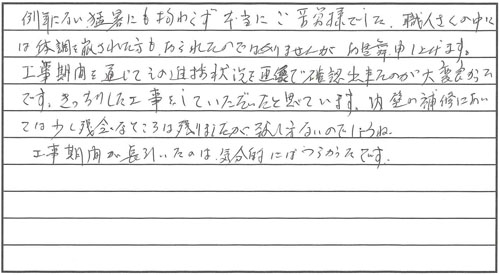 例年にない猛暑にも拘わらず本当にご苦労様でした。職人さんの中に
は体調を崩された方もおられたのではありませんが お見舞申し上げます。
工事期間を通じてその進捗状況を画像で確認出来たのが大変良かったで
です。きっちりした工事をしていただいたと思っています。内壁の補修におい
ては少し残念なところは残りましたが致し方ないのでしょうね。
工事期間が長引いたのは、気分的にはつらかったです。